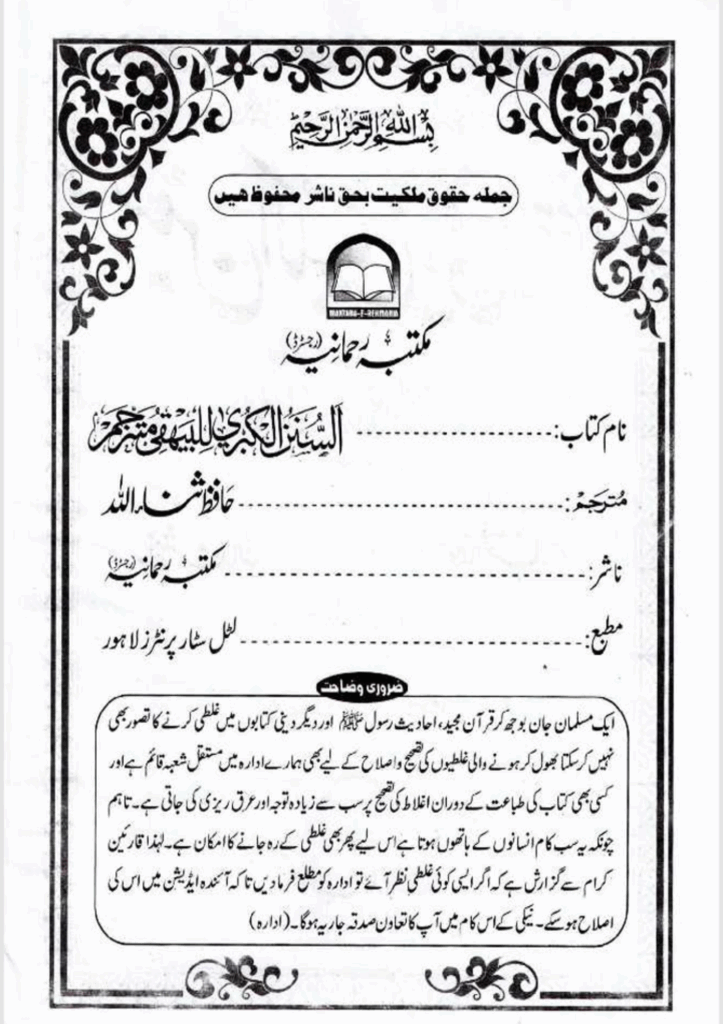 بسم الله الرحمن الرحيم
جملہ حقوق ملکیت بحق ناشر محفوظ ہیں
MAKTABA-E-REHMANIA
مکتبہ رحمانیہ (رجسٹرڈ)
نام کتاب: السُّنَنُ الكُبْرىٰ لِلْبَيْهَقِيّ مُتَرجَم
مُترجم: حافظ ثناء اللہ
ناشر: مکتبہ رحمانیہ (رجسٹرڈ)
مطبع: لٹل سٹار پرنٹرز لاہور
ضروری وضاحت
ایک مسلمان جان بوجھ کر قرآن مجید، احادیث رسول ﷺ اور دیگر دینی کتابوں میں غلطی کرنے کا تصور بھی
نہیں کر سکتا بھول کر ہونے والی غلطیوں کی تصحیح و اصلاح کے لیے بھی ہمارے ادارہ میں مستقل شعبہ قائم ہے اور
کسی بھی کتاب کی طباعت کے دوران اغلاط کی تصحیح پر سب سے زیادہ توجہ اور عرق ریزی کی جاتی ہے۔ تاہم
چونکہ یہ سب کام انسانوں کے ہاتھوں ہوتا ہے اس لیے پھر بھی غلطی کے رہ جانے کا امکان ہے۔ لہٰذا قارئین
کرام سے گزارش ہے کہ اگر ایسی کوئی غلطی نظر آئے تو ادارہ کو مطلع فرما دیں تاکہ آئندہ ایڈیشن میں اس کی
اصلاح ہو سکے۔ نیکی کے اس کام میں آپ کا تعاون صدقہ جاریہ ہوگا۔ (ادارہ)